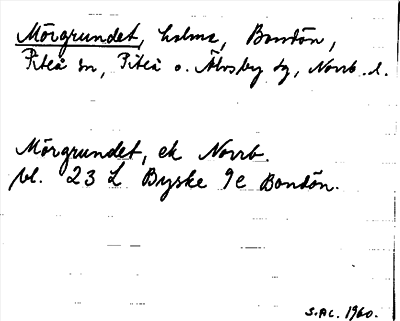 Mörgrundet, holme, Bondön,
Piteå sn, Piteå o. Älvsby tg, Norrb. l.
Mörgrundet, ek Norrb.
bl. 23 L Byske 9e Bondön.
S.Ac. 1960.